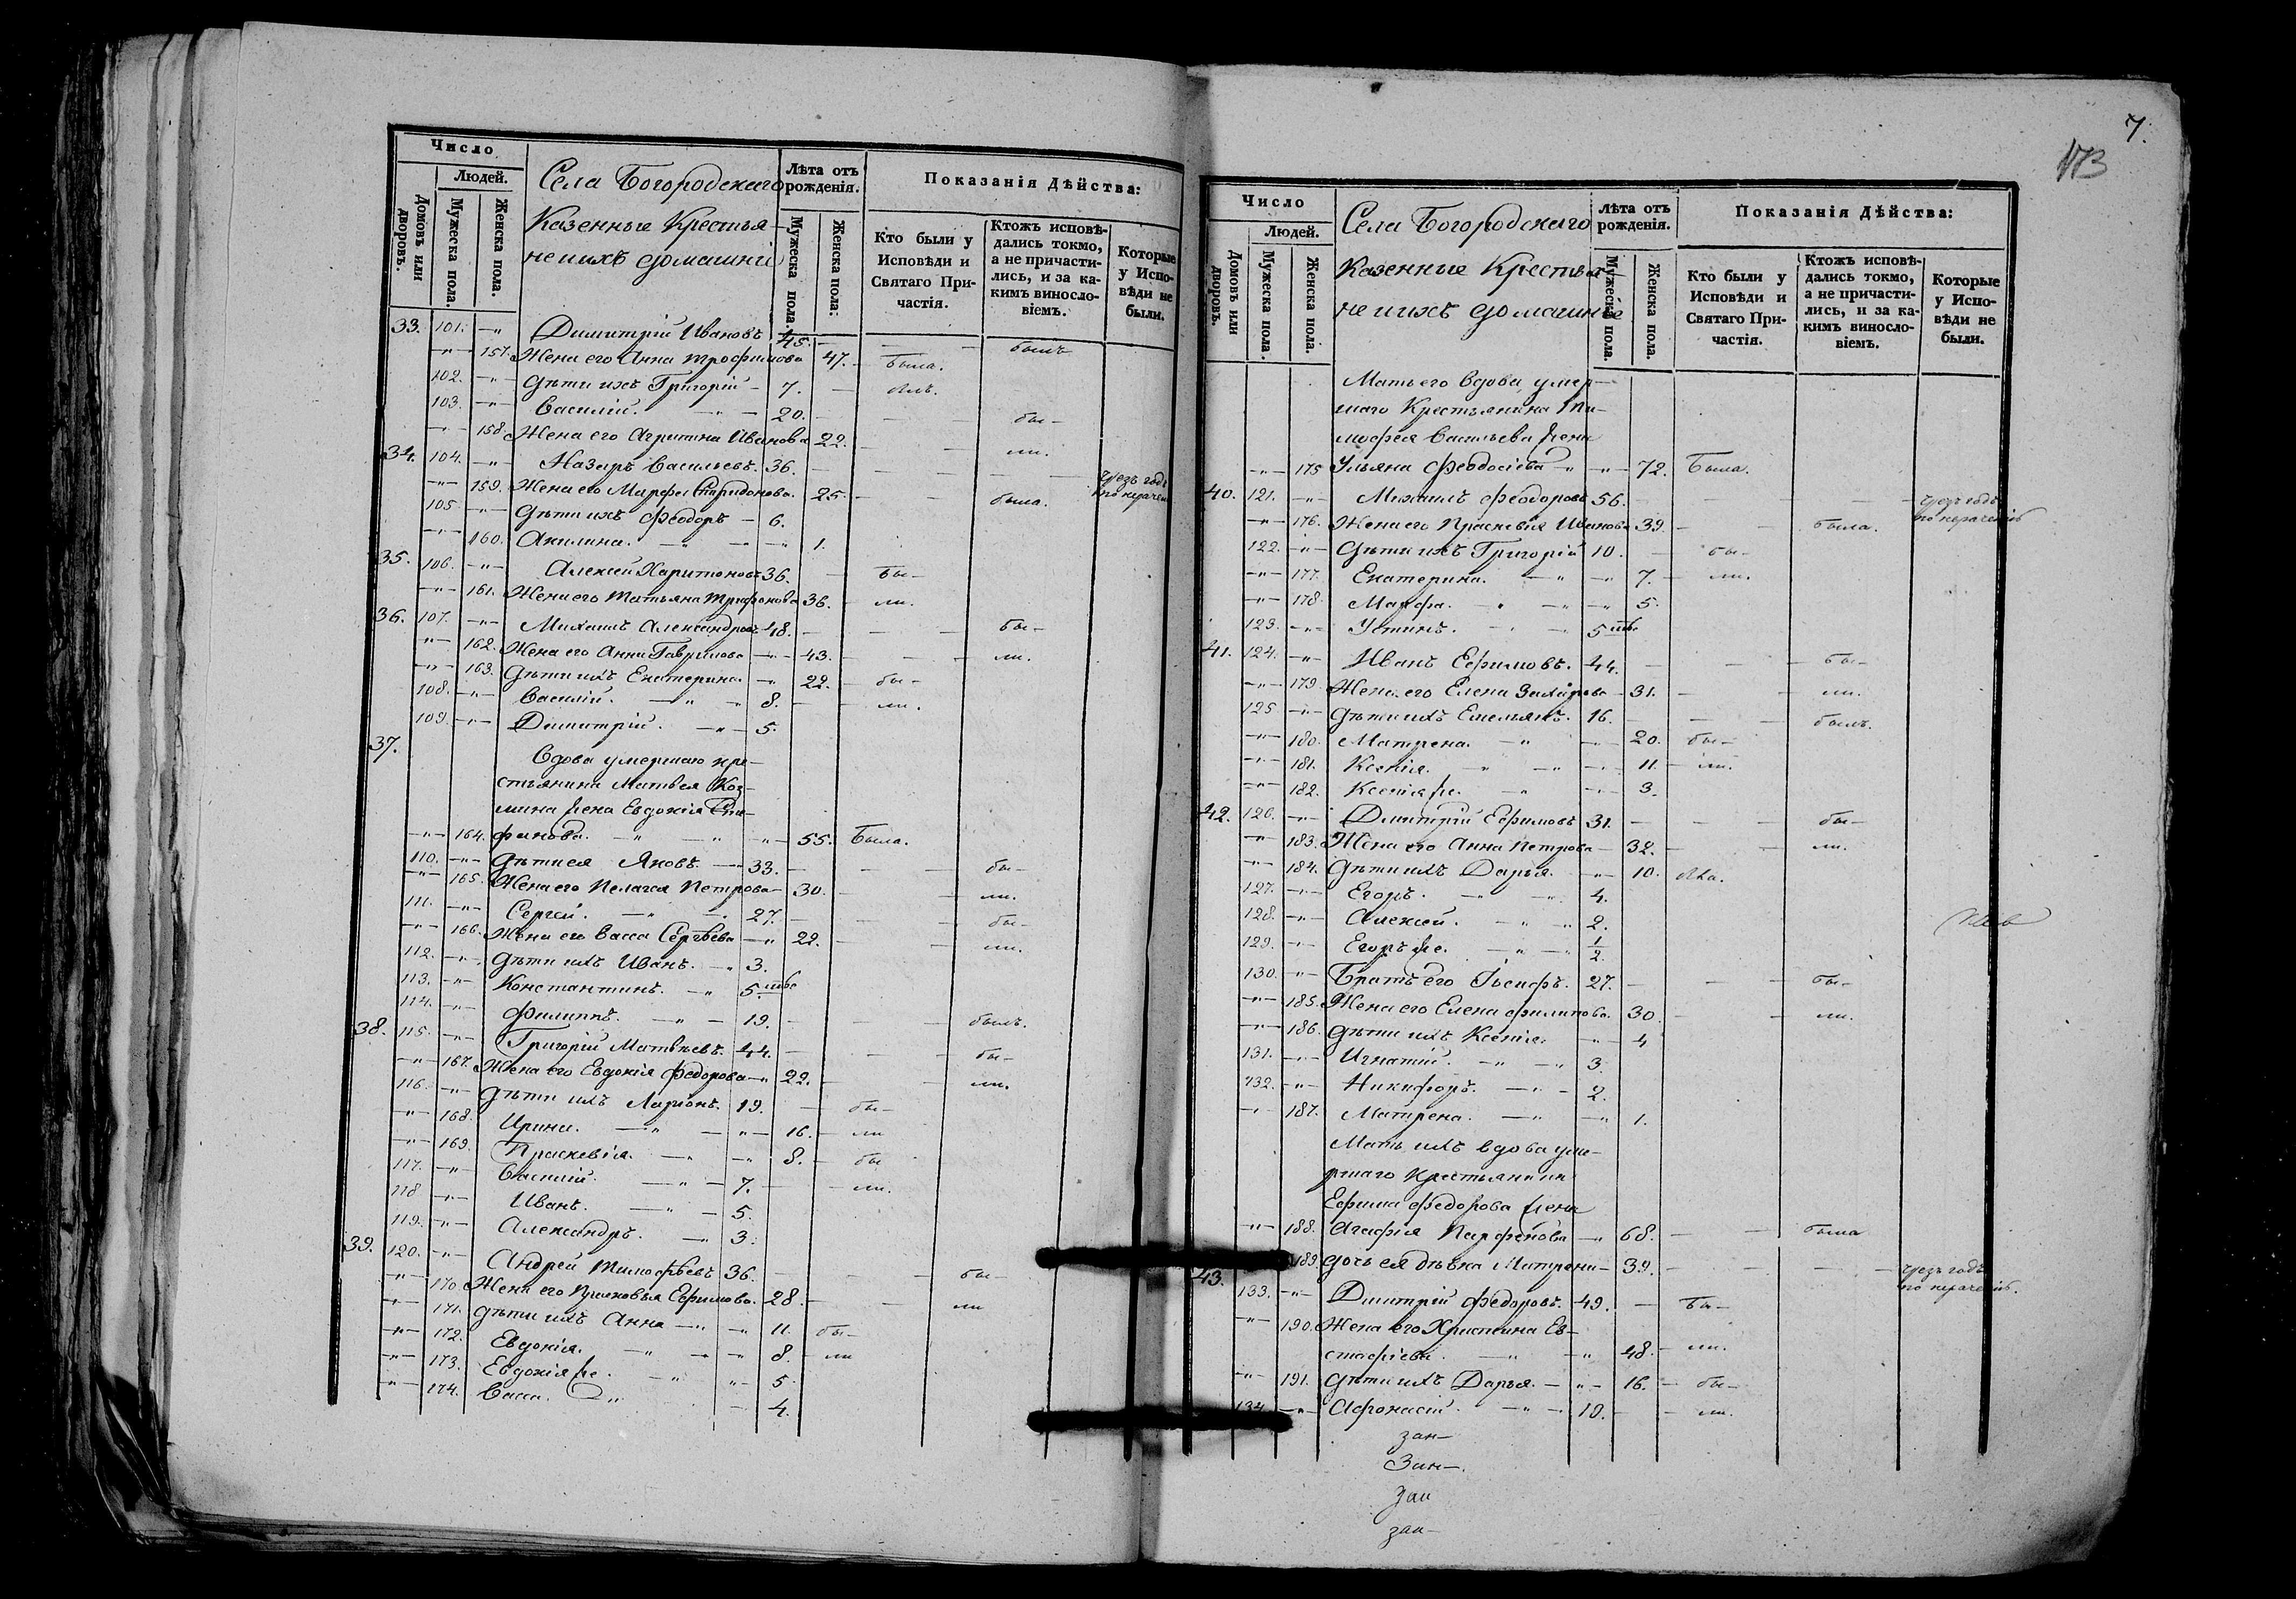 Число
Людей.
Домовъ или дворовъ.
Мужеска пола.
Женска пола.
Села Богородскаго
Казенные Крестья-
не и ихъ домашніе
Лѣта отъ рожденія.
Мужеска пола.
Женска пола.
Показанія Дѣйства:
Кто были у Исповѣди и Святаго Причастія.
Ктожъ исповѣдались токмо, а не причастились, и за какимъ винословіемъ.
Которые у Исповѣди не были.
33. 101. —„ Димитрій Ивановъ 45. — — — былъ
—„— 157. Жена его Анна Трофимова 47. — была.
102. —„— Дѣти ихъ Григорій — 7. —
103. —„— Василій. —„— 20. — — бы—
—„— 158. Жена его Агрипина Иванова 22. — — ли.
34. 104. —„— Назаръ Васильевъ. 36. — — — — чрезъ годъ
—„— 159. Жена его Марфа Спиридонова. 25. — — была. по нераченію
105. —„— Дѣти ихъ Феодоръ — 6.
—„— 160. Акилина. —„ —„ —„ 1.
35. 106. —„— Алексей Харитоновъ 36. — Бы—
—„— 161. Жена его Татьяна Трифонова 36. — ли.
36. 107. —„— Михаилъ Александровъ 48. — — — бы—
—„— 162. Жена его Анна Гаврилова —„— 43. — — ли.
—„— 163. Дѣти ихъ Екатерина. —„ 22. — бы—
108. —„— Василій. —„ —„ 8. — ли.
109. —„— Димитрій. —„— 5.
37.
Вдова умершаго кре-
стьянина Матвея Коз-
мина жена Евдокія
—„— 164. —„— 55. Была.
110. —„— Дѣти ея Яковъ. — 33. — — — бы—
—„— 165. Жена его Пелагея Петрова — 30. — — ли.
111. —„— Сергей. —„ — 27. — — бы—
—„— 166. Жена его Васса Сергѣева —„ 22. — — ли.
112. —„— Дѣти ихъ Иванъ. —„ 3.
113. —„— Константинъ. —„ 5.
114. —„— Филиппъ. —„ — 19. — — былъ.
38. 115. —„— Григорій Матвѣевъ. 44. — — — бы—
—„— 167. Жена его Евдокія Федорова —„ 22. — — ли.
116. —„— Дѣти ихъ Ларіонъ. 19. — бы—
—„— 168. Ирина. —„ —„— 16. — ли
—„— 169. Праскевія. —„ —„— 8. — бы
117. —„— Василій. —„ — 7. — ли.
118 —„— Иванъ. —„ — 5.
119. —„— Александръ. —„ 3.
39. 120. —„— Андрей Тимофѣевъ 36. — — — бы—
—„— 170 Жена его Прасковья Ефимова. 28. — — ли
—„— 171. Дѣти ихъ Анна —„ —„ 11. бы—
—„— 172. Евдокія. —„ —„ 8. — ли
—„— 173. Евдокія же. —„ —„ 5
—„— 174. Васса. —„ — 4.
7.
173
Число
Людей.
Домовъ или дворовъ.
Мужеска пола.
Женска пола.
Села Богородскаго
Казенные Крестья-
не и ихъ домашніе
Лѣта отъ рожденія.
Мужеска пола.
Женска пола.
Показанія Дѣйства:
Кто были у Исповѣди и Святаго Причастія.
Ктожъ исповѣдались токмо, а не причастились, и за какимъ винословіемъ.
Которые у Исповѣди не были.
Мать его вдова, умер-
шаго Крестьянина Ти-
мофея Васильева жена
—„— 175 Ульяна Феодосіева —„— 72. Была.
40. 121. —„— Михаилъ Феодоровъ 56. — — — — чрезъ годъ
—„— 176. Жена его Праскевія Иванова 39. — — была. по нераченію
122. —„— Дѣти ихъ Григорій 10. — бы—
—„— 177. Екатерина. —„ —„ 7. — ли.
—„— 178. Марфа. —„ —„ 5.
123. —„— Устинъ. —„ — 5
41. 124. —„— Иванъ Ефимовъ. 44. — — — бы—
—„— 179. Жена его Елена Захарова — 31. — — ли.
125 —„— Дѣти ихъ Емельянъ. 16. — — — былъ.
—„— 180. Матрена. —„ —„ 20. бы—
—„— 181. Ксенія. —„ —„ 11. — ли.
—„— 182. Ксенія же. —„ —„ 3.
42. 126. —„— Димитрій Ефимовъ 31. — — — бы—
—„— 183. Жена его Анна Петрова — 32. — — ли.
—„— 184. Дѣти ихъ Дарья. —„ 10.
127. —„— Егоръ. —„ —„ 4.
128. —„— Алексей. —„ —„ 2.
129. —„— Егоръ же. —„ —„ 1/2
130. —„— Братъ его Іосифъ. 27. — — — бы—
—„— 185. Жена его Елена Филипова. 30. — — ли.
—„— 186. Дѣти ихъ Ксенія. —„ 4
131. —„— Игнатій. —„ —„ 3.
132. —„— Никифоръ. —„ — 2.
—„— 187. Матрена. —„ —„ 1.
Мать ихъ вдова уме-
ршаго Крестьянина
Ефима Федорова жена
—„— 188. Агафія Парфенова —„ 68. — — была
189. Дочь ея дѣвка Матрена — 39. — — — — чрезъ годъ
по нераченію.
43. 133. —„— Димитрій Федоровъ. 49. — Бы—
—„— 190. Жена его Христина Ев-
стафіева. —„ —„ 48. — ли.
—„— 191. Дѣти ихъ Дарья. —„— 16. — бы—
134. —„— Афонасій. —„ — 10. — — ли.